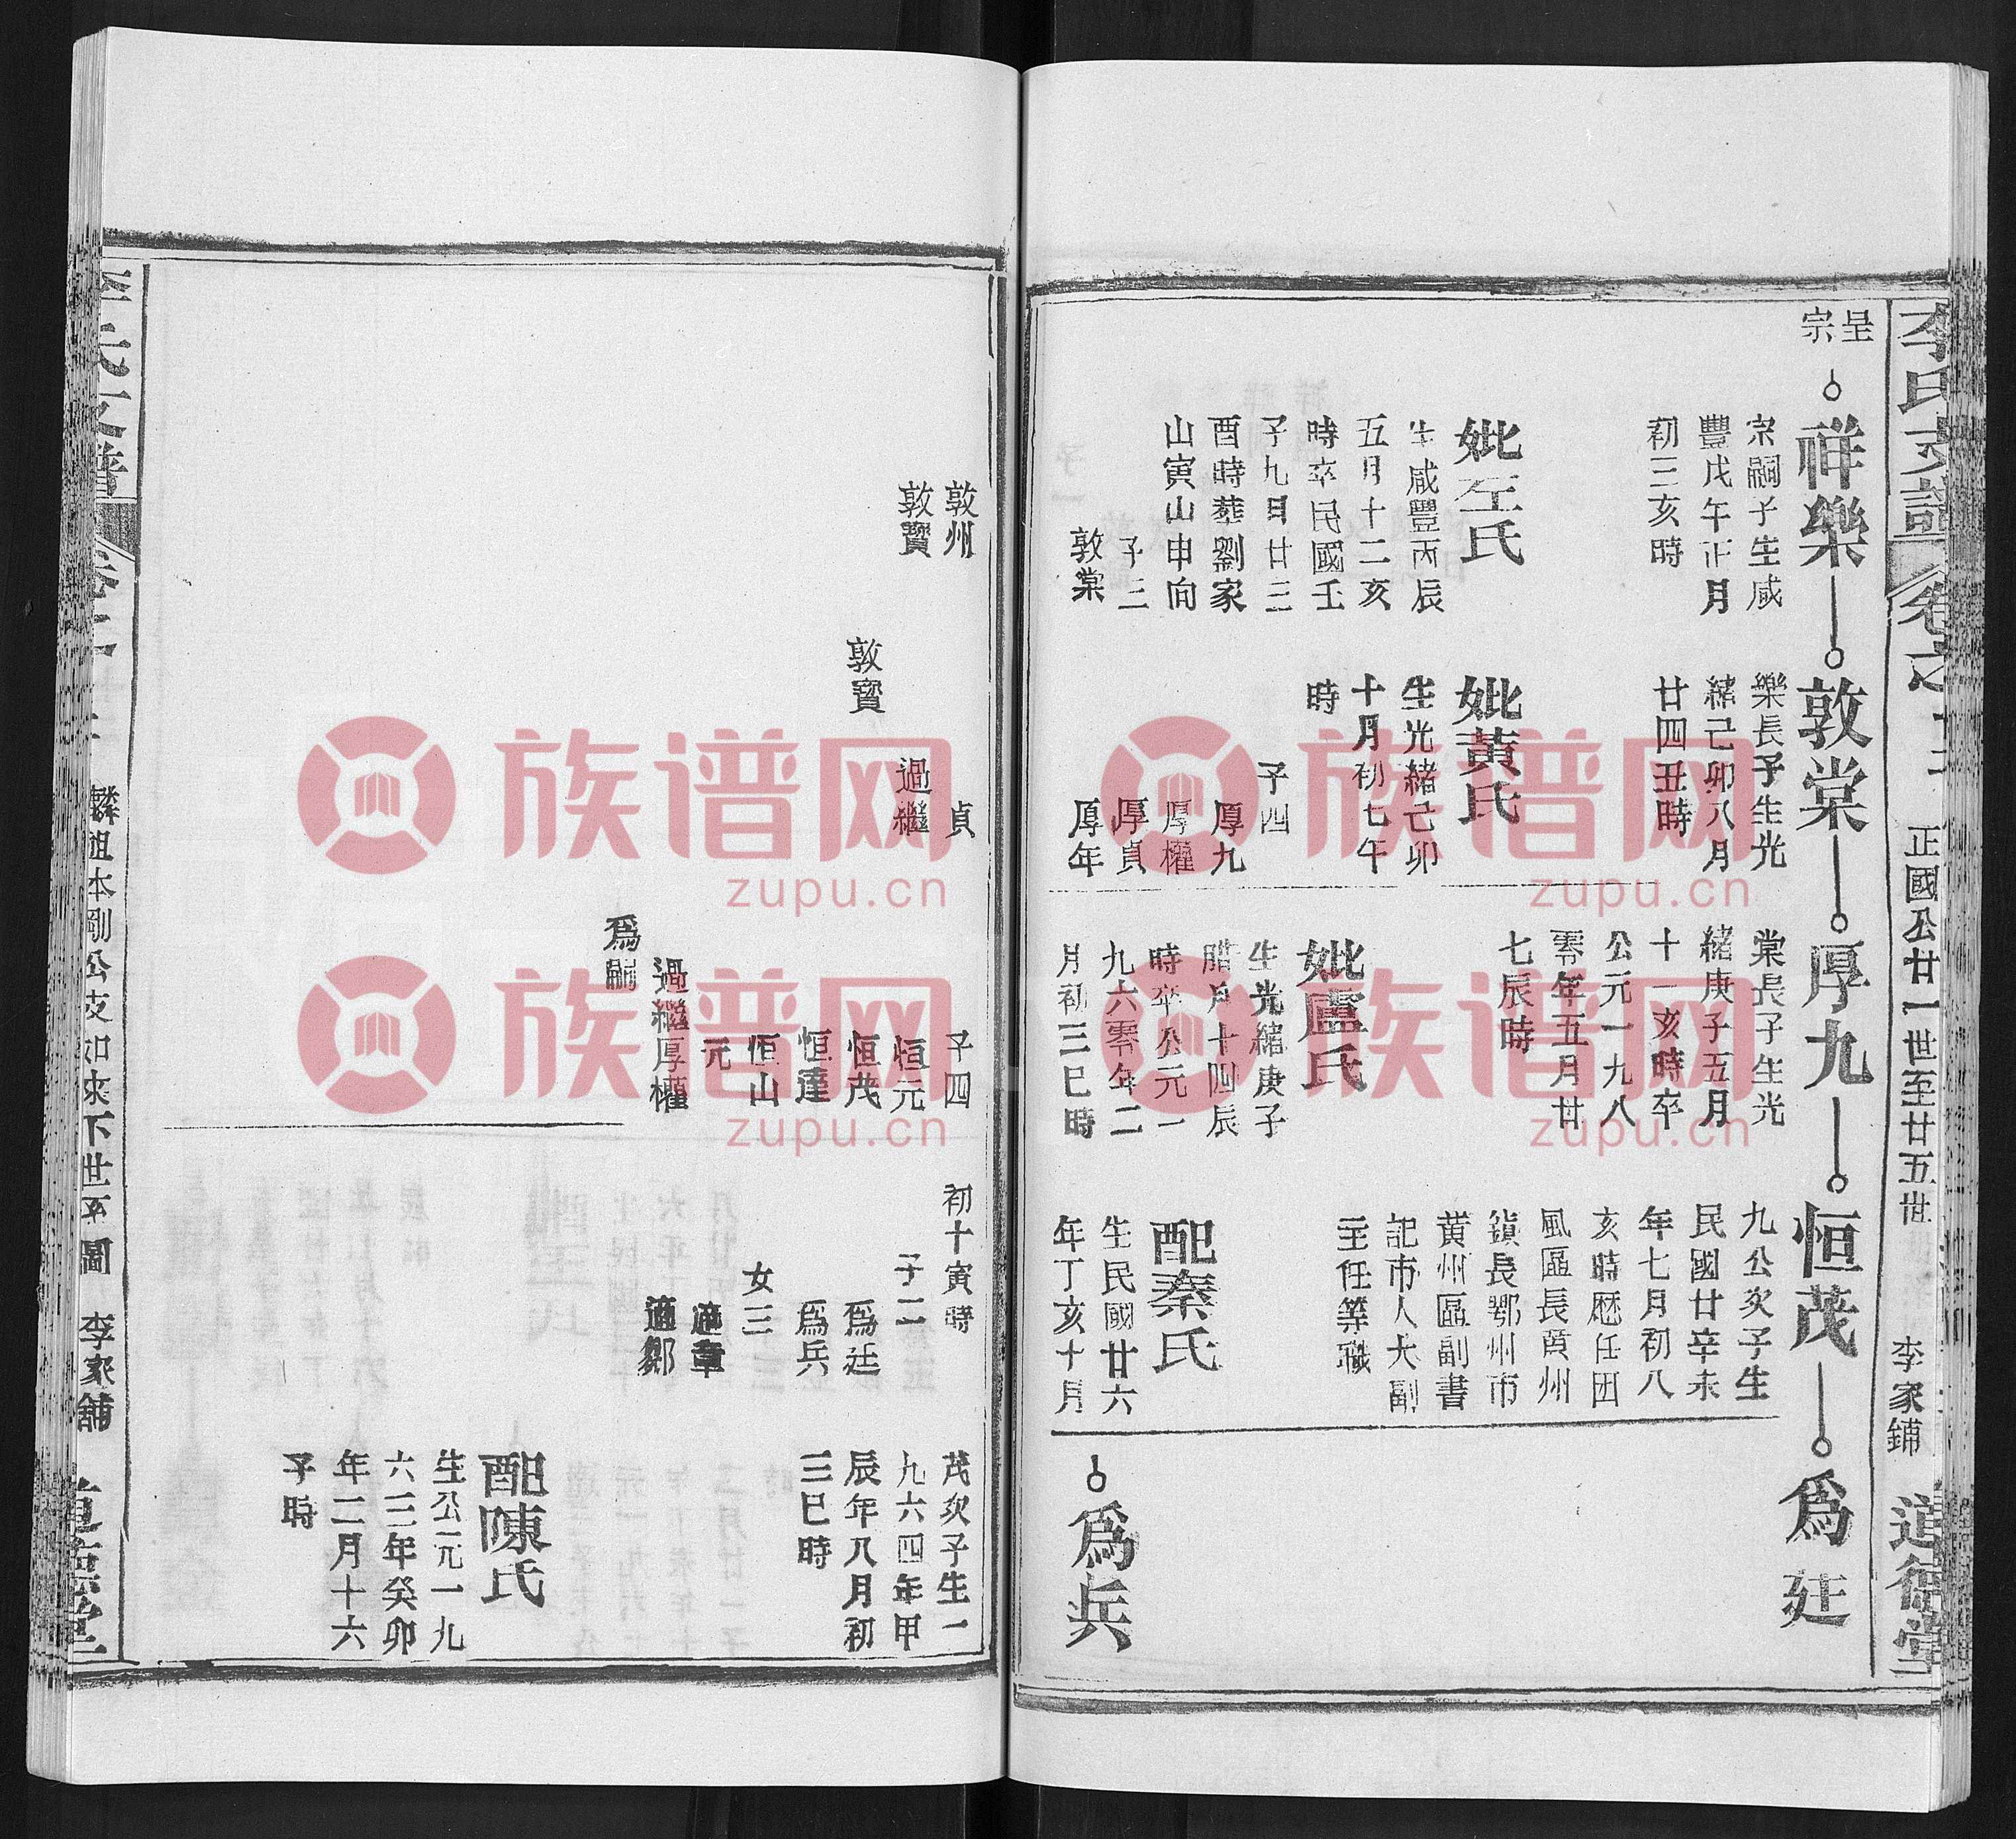 李氏支譜
卷之
正國公廿一世至廿五世
李家鋪
道德堂
呈
宗
祥樂
宗嗣子生咸
豐戊午正月
初三亥時
妣左氏
生咸豐丙辰
五月十二亥
時卒民國壬
子九月廿三
酉時葬劉家
山寅山申向
子三
敦棠
敦棠
樂長子生光
緒己卯八月
廿四丑時
妣黃氏
生光緒己卯
十月初七午
時
子四
厚九
厚權
厚貞
厚年
厚九
棠長子生光
緒庚子五月
十一亥時卒
公元一九八
零年五月廿
七辰時
妣盧氏
生光緒庚子
腊月十四辰
時卒公元一
九六零年二
月初三巳時
恒茂
九公次子生
民國廿辛未
年七月初八
亥時歷任团
風區長黄州
鎮長鄂州市
黄州區副書
記市人大副
主任等職
配秦氏
生民國廿六
年丁亥十月
為廷
為兵
敦州
敦寳
敦寳
貞
過繼
子四
恒元
恒茂
恒達
恒山
元
過繼厚權
為嗣
初十寅時
子二
為廷
為兵
女三
適章
適鄒
茂次子生一
九六四年甲
辰年八月初
三巳時
配陳氏
生公元一九
六三年癸卯
年二月十六
子時
李氏支譜
麟祖本剛公支如來下世系圖
李家鋪
道德堂
族谱网
zupu.cn
族谱网
zupu.cn
族谱网
zupu.cn
族谱网
zupu.cn